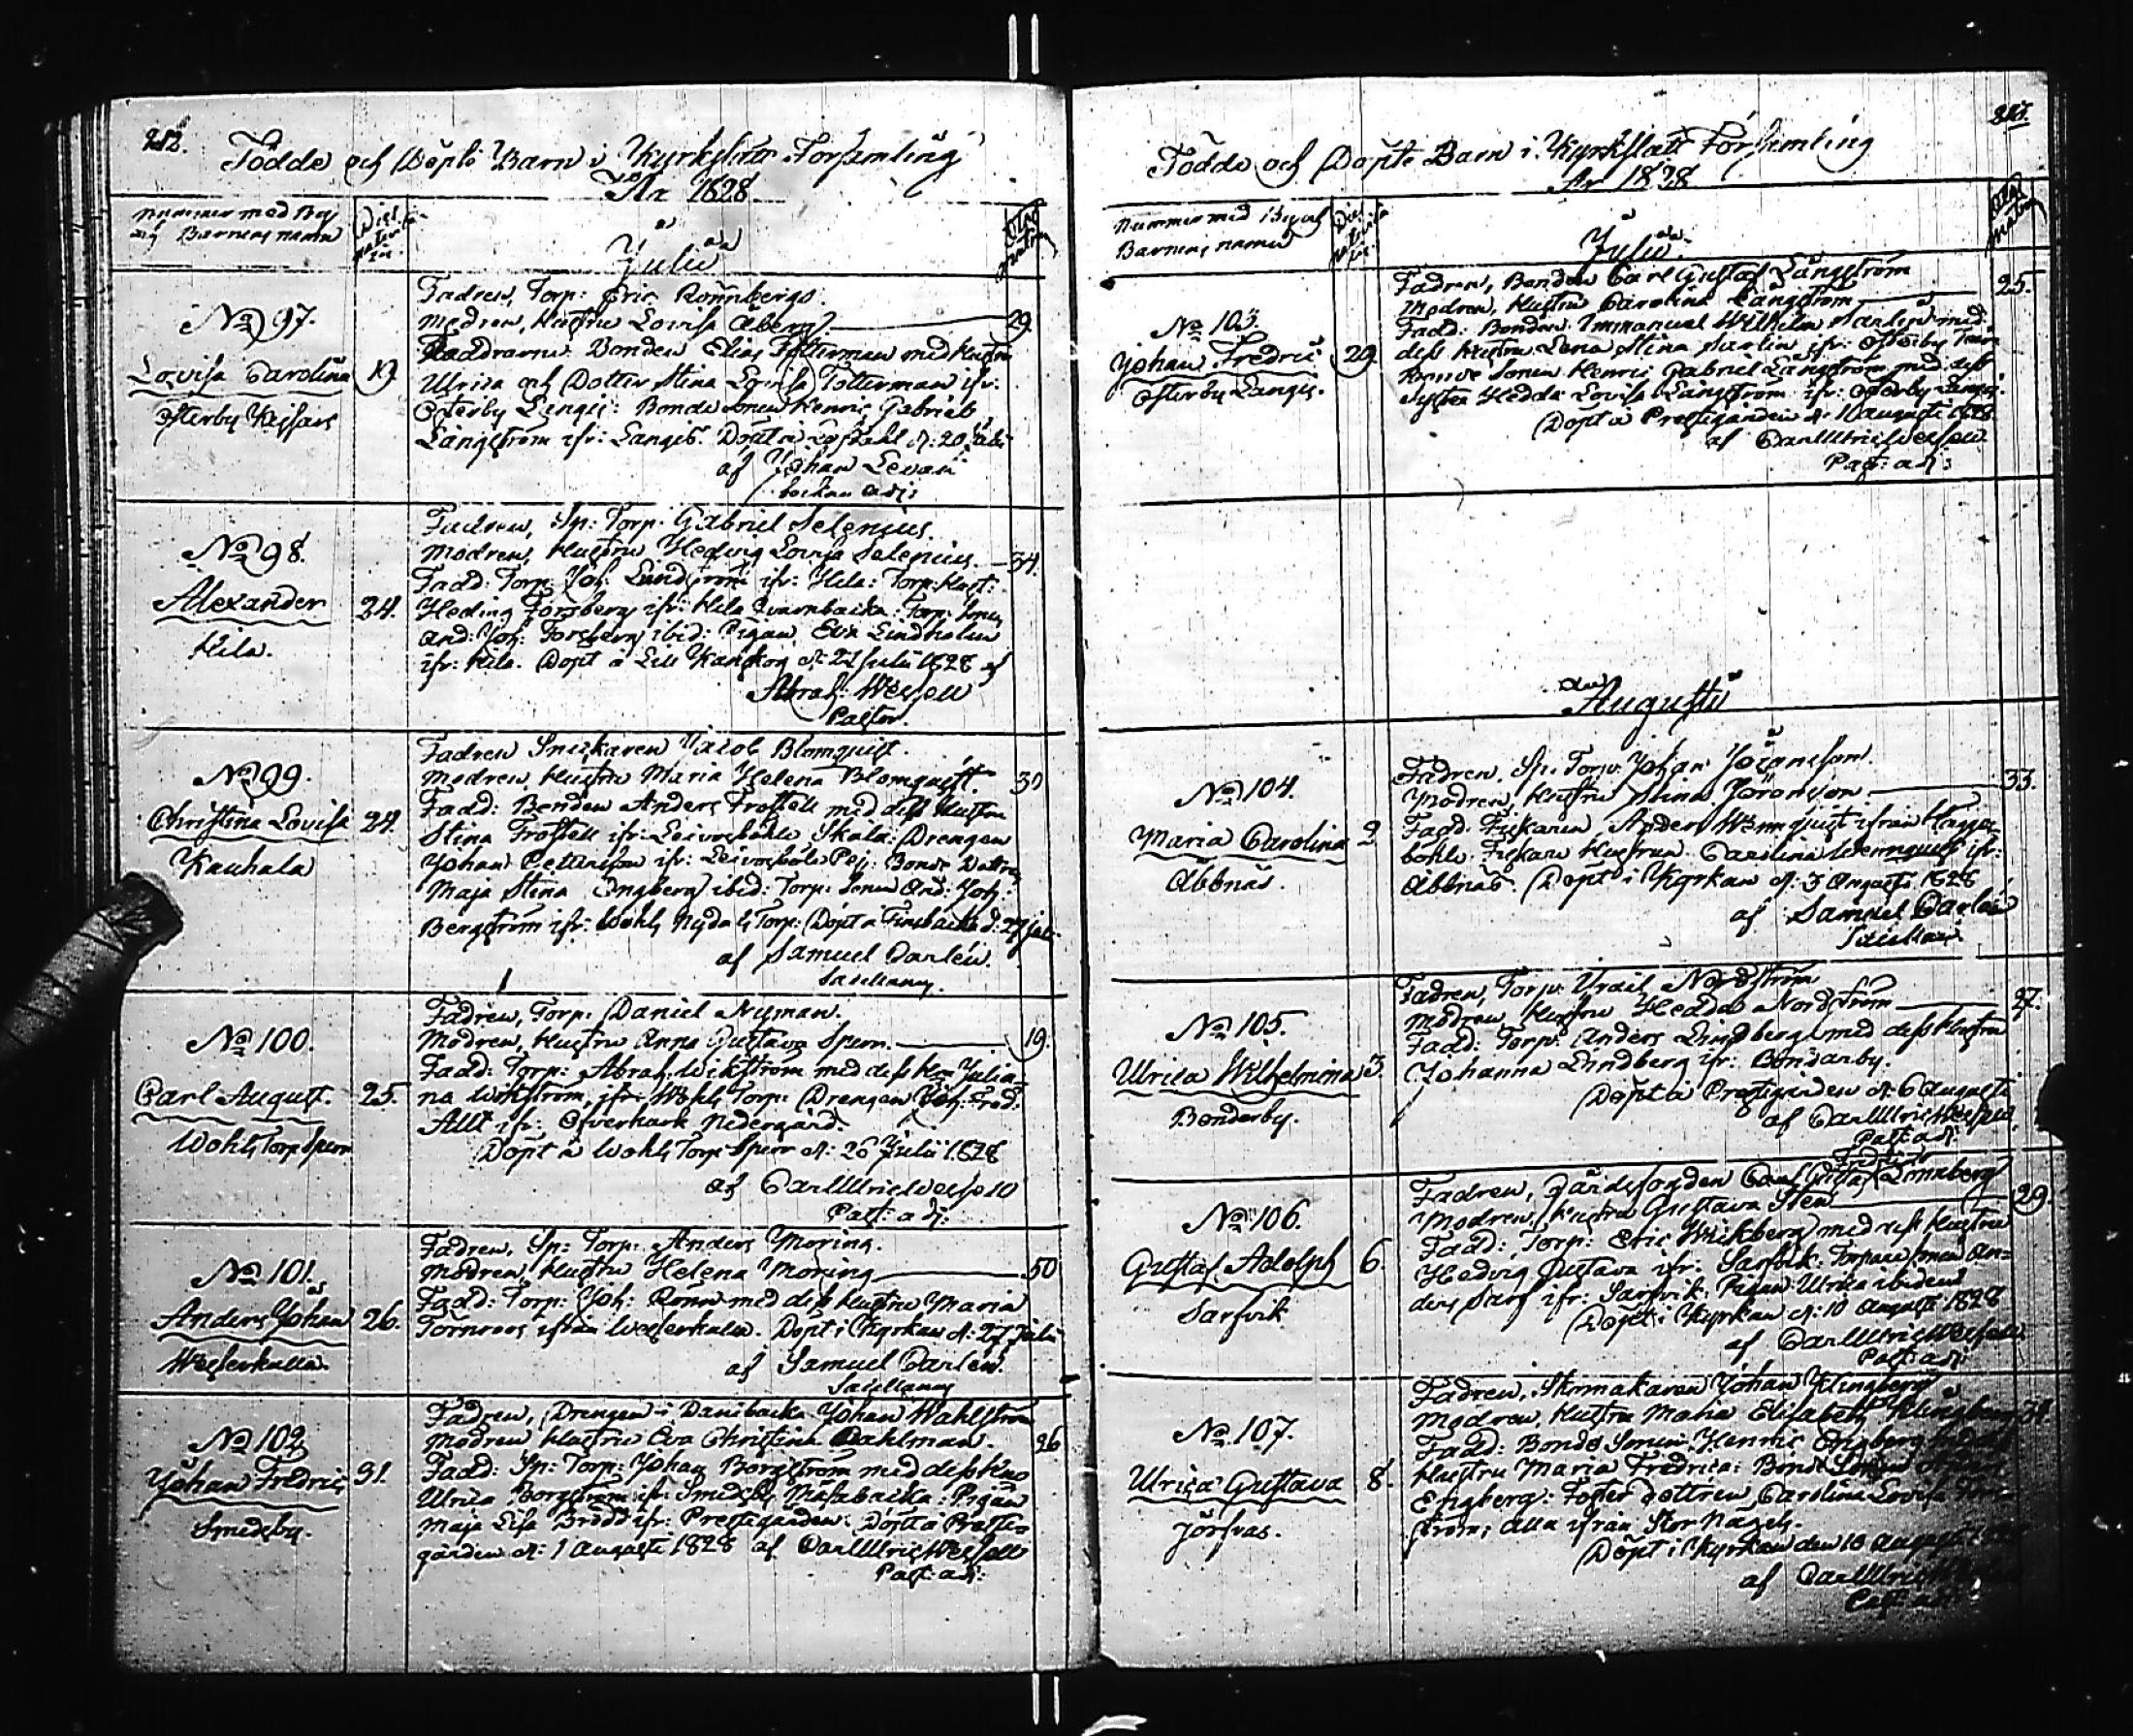 212.
Födde och Döpte Barn i Kyrkslätt Församling
År 1828.
Nummer med By
och Barnens namn
Julii
No 97.
Lovisa Carolina
Österby Kejsars
19
Fadren, Torp: Eric Rönnbergs.
Modren, Hustru Lovisa Åberg. 29.
Faddrarne Bonden Elias Tolterman med Hustru
Ulrica och Dotter Stina Lovisa Tolterman ifr:
Österby Längis: Bonde Sonen Henric Gabriel
Långström ifr: Langis. Döpt d: 20 Julii
af Johan Levan
adj:
No 98.
Alexander
Kila.
24.
Fadren, Sp: Torp: Gabriel Selenius.
Modren, Hustru Hedvig Lovisa Selenius. 34.
Fadd: Torp: Joh: Lindström ifr: Kila: Torp: Hust:
Hedvig Forsberg ifr: Kila Qvarnbacka: Torp: Sonen
And: Joh: Forsberg ibid: Pigan Eva Lindholm
ifr: Kila. Döpt å Lill Kanskog d: 27 Julii 1828 af
Abrah: Wesselo
Pastor.
No 99.
Christina Lovisa
Kauhala
24.
Fadren Snickaren Jacob Blomquist.
Modren, Hustru Maria Helena Blomquist. 30
Fadd: Bonden Anders Frostell med dess Hustru
Stina Frostell ifr: Leivosböhle Skala: Drengen
Johan Pettersson ifr: Leivosböle Pej: Bonde Dottren
Maja Stina Engberg ibid: Torp: Sonen And: Joh:
Bergström ifr: Wohls Nydahls Torp: Döpt å Finsbacka d: 27 Jul:
af Samuel Carlén.
Sacellanus.
No 100.
Carl August.
Wohls Torp Sperr
25.
Fadren, Torp: Daniel Nyman.
Modren, Hustru Anna Gustava Sperr. 19.
Fadd: Torp: Abrah: Wikström med dess Hu: Julia-
na Wikström, ifr: Wohls Torp: Drengen Joh: Fred:
Allt ifr: Öfverkurk Nedergård.
Döpt å Wohls Torp Sperr d: 26 Julii 1828
af Carl Ulric Wesselo
Past: adj:
No 101.
Anders Johan
Westerkulla.
26.
Fadren, Sp: Torp: Anders Moring.
Modren, Hustru Helena Moring 50
Fadd: Torp: Joh: Rönn med dess Hustru Maria
Törnroos ifrån Westerkulla. Döpt i Kyrkan d: 27 Julii
af Samuel Carlén.
Sacellanus
No 102
Johan Fredric
Smedsby.
31.
Fadren, Drengen i Dansbacka Johan Wahlström
Modren Hustru Eva Christina Dahlman. 26
Fadd: Sp: Torp: Johan Borgström med dess Hu:
Ulrica Borgström ifr: Smedsby Masabacka: Pigan
Maja Lisa Brodd ifr: Prestgården. Döpt å Prest-
gården d: 1 Augusti 1828 af Carl Ulric Wesselo
Past: adj:
213.
Födde och Döpte Barn i Kyrkslätt Församling
År 1828
Nummer med By och
Barnens namn
Julii
No 103.
Johan Fredric
Österby Langis.
29.
Fadren, Bonden Carl Gustaf Långström
Modren, Hustru Carolina Långström 25.
Fadd: Bonden Immanuel Wilhelm Sarlin med
dess Hustru Lena Stina Sarlin ifr: Österby
Bonde Sonen Henric Gabriel Långström med dess
Syster Hedda Lovisa Långström ifr: Österby Langis.
Döpt å Prestgården d: 1 Augusti 1828
af Carl Ulric Wesselo
Past: adj:
Augusti
No 104.
Maria Carolina
Åbbnäs.
2.
Fadren, Sp: Torp: Johan Göransson.
Modren, Hustru Stina Göransson. 33.
Fadd: Fiskaren Anders Wennquist ifrån Hagges-
böhle: Fiskare Hustrun Carolina Wennquist ifr:
Åbbnäs. Döpt i Kyrkan d: 3 Augusti 1828
af Samuel Carlén
Sacellan
No 105.
Ulrica Wilhelmina
Bonderby.
3.
Fadren, Torp: Israil Nordström
Modren, Hustru Hedda Nordström 27.
Fadd: Torp: Anders Lindberg med dess Hustru
Johanna Lindberg ifr: Bonderby.
Döpt å Prestgården d: 6 Augusti
af Carl Ulric Wesselo
Past: adj:
No 106.
Gustaf Adolph
Sarfvik
6.
Fadren, Gårdsfogden Carl Gustaf Lönnberg
Modren, Hustru Gustava Sten 29.
Fadd: Torp: Eric Wikberg med dess Hustru
Hedvig Gustava ifr: Sarfvik: Torpare Sonen An-
ders Sarf ifr: Sarfvik: Pigan Ulrica ibidem
Döpt i Kyrkan d: 10 Augusti 1828
af Carl Ulric Wesselo
Past: adj:
No 107.
Ulrica Gustava
Jorfvas.
8.
Fadren, Skomakaren Johan Klingberg
Modren, Hustru Maria Elisabeth Klingberg 34
Fadd: Bonde Sonen Henric Engberg med dess
Hustru Maria Fredrica: Bonde Sonen
Engberg: Foster dottren Carolina Lovisa
ström; alla ifrån Stor Nägels.
Döpt i Kyrkan den 10 Augusti
af Carl Ulric
Past: adj: